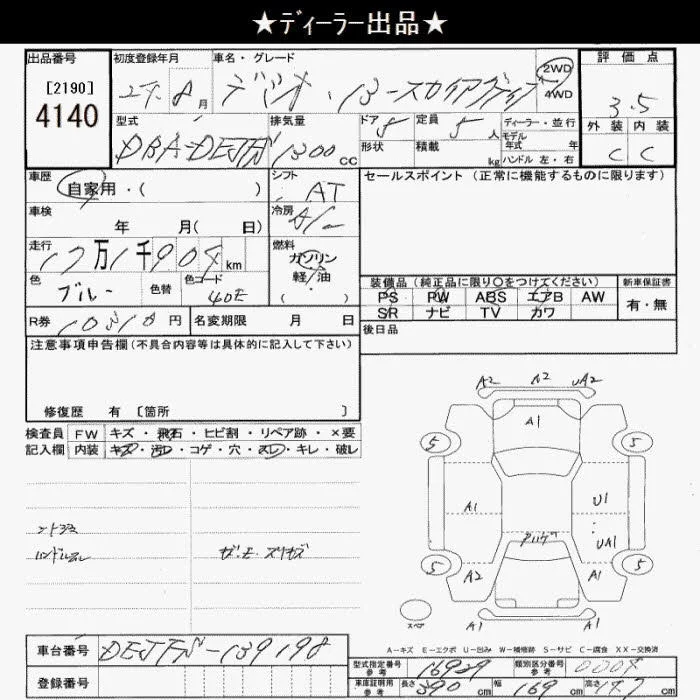 ★ディーラー出品★
出品番号 初度登録年月 車名・グレード 評価点
[2190]
4140
27年 8月 デミオ・13-スカイアクティブ 2WD
4WD
3.5
型式 排気量 ドア 定員 ディーラー・並行
DBA-DEJFS 1300cc 5 5人 モデル年式 年
形状 積載 kg ハンドル 左・右
外装 内装
C C
車歴 シフト セールスポイント (正常に機能するものに限ります)
自家用・( ) AT
車検 冷房
年 月( 日) A/C
走行 燃料
17万1千904km ガソリン
軽油
( ・ )
色 色替 色コード
ブルー 40E
装備品(純正品に限り○をつけてください) 新車保証書
PS PW ABS エアB AW 有・無
SR ナビ TV カワ
R券 10310円 名変期限 月 日
後日品
注意事項申告欄(不具合内容等は具体的に記入して下さい)
修復歴 有 [箇所 ]
検査員 FW キズ・飛石・ヒビ割・リペア跡・×要
記入欄 内装 キズ・汚レ・コゲ・穴・スレ・キレ・破レ
A2 A2 UA2
A1
5 5
A1 U1
UA1
ハンドルスレ
5 5
A2 A1
スペア
A1 A1
A-キズ E-エクボ U-凹み W-補修跡 S-サビ C-腐食 XX-交換済
車台番号 DEJFS-139198
型式指定番号 参考 16929 類別区分番号 参考 0004
登録番号
車庫証明用 参考 長さ 390cm 幅 169cm 高さ 147cm